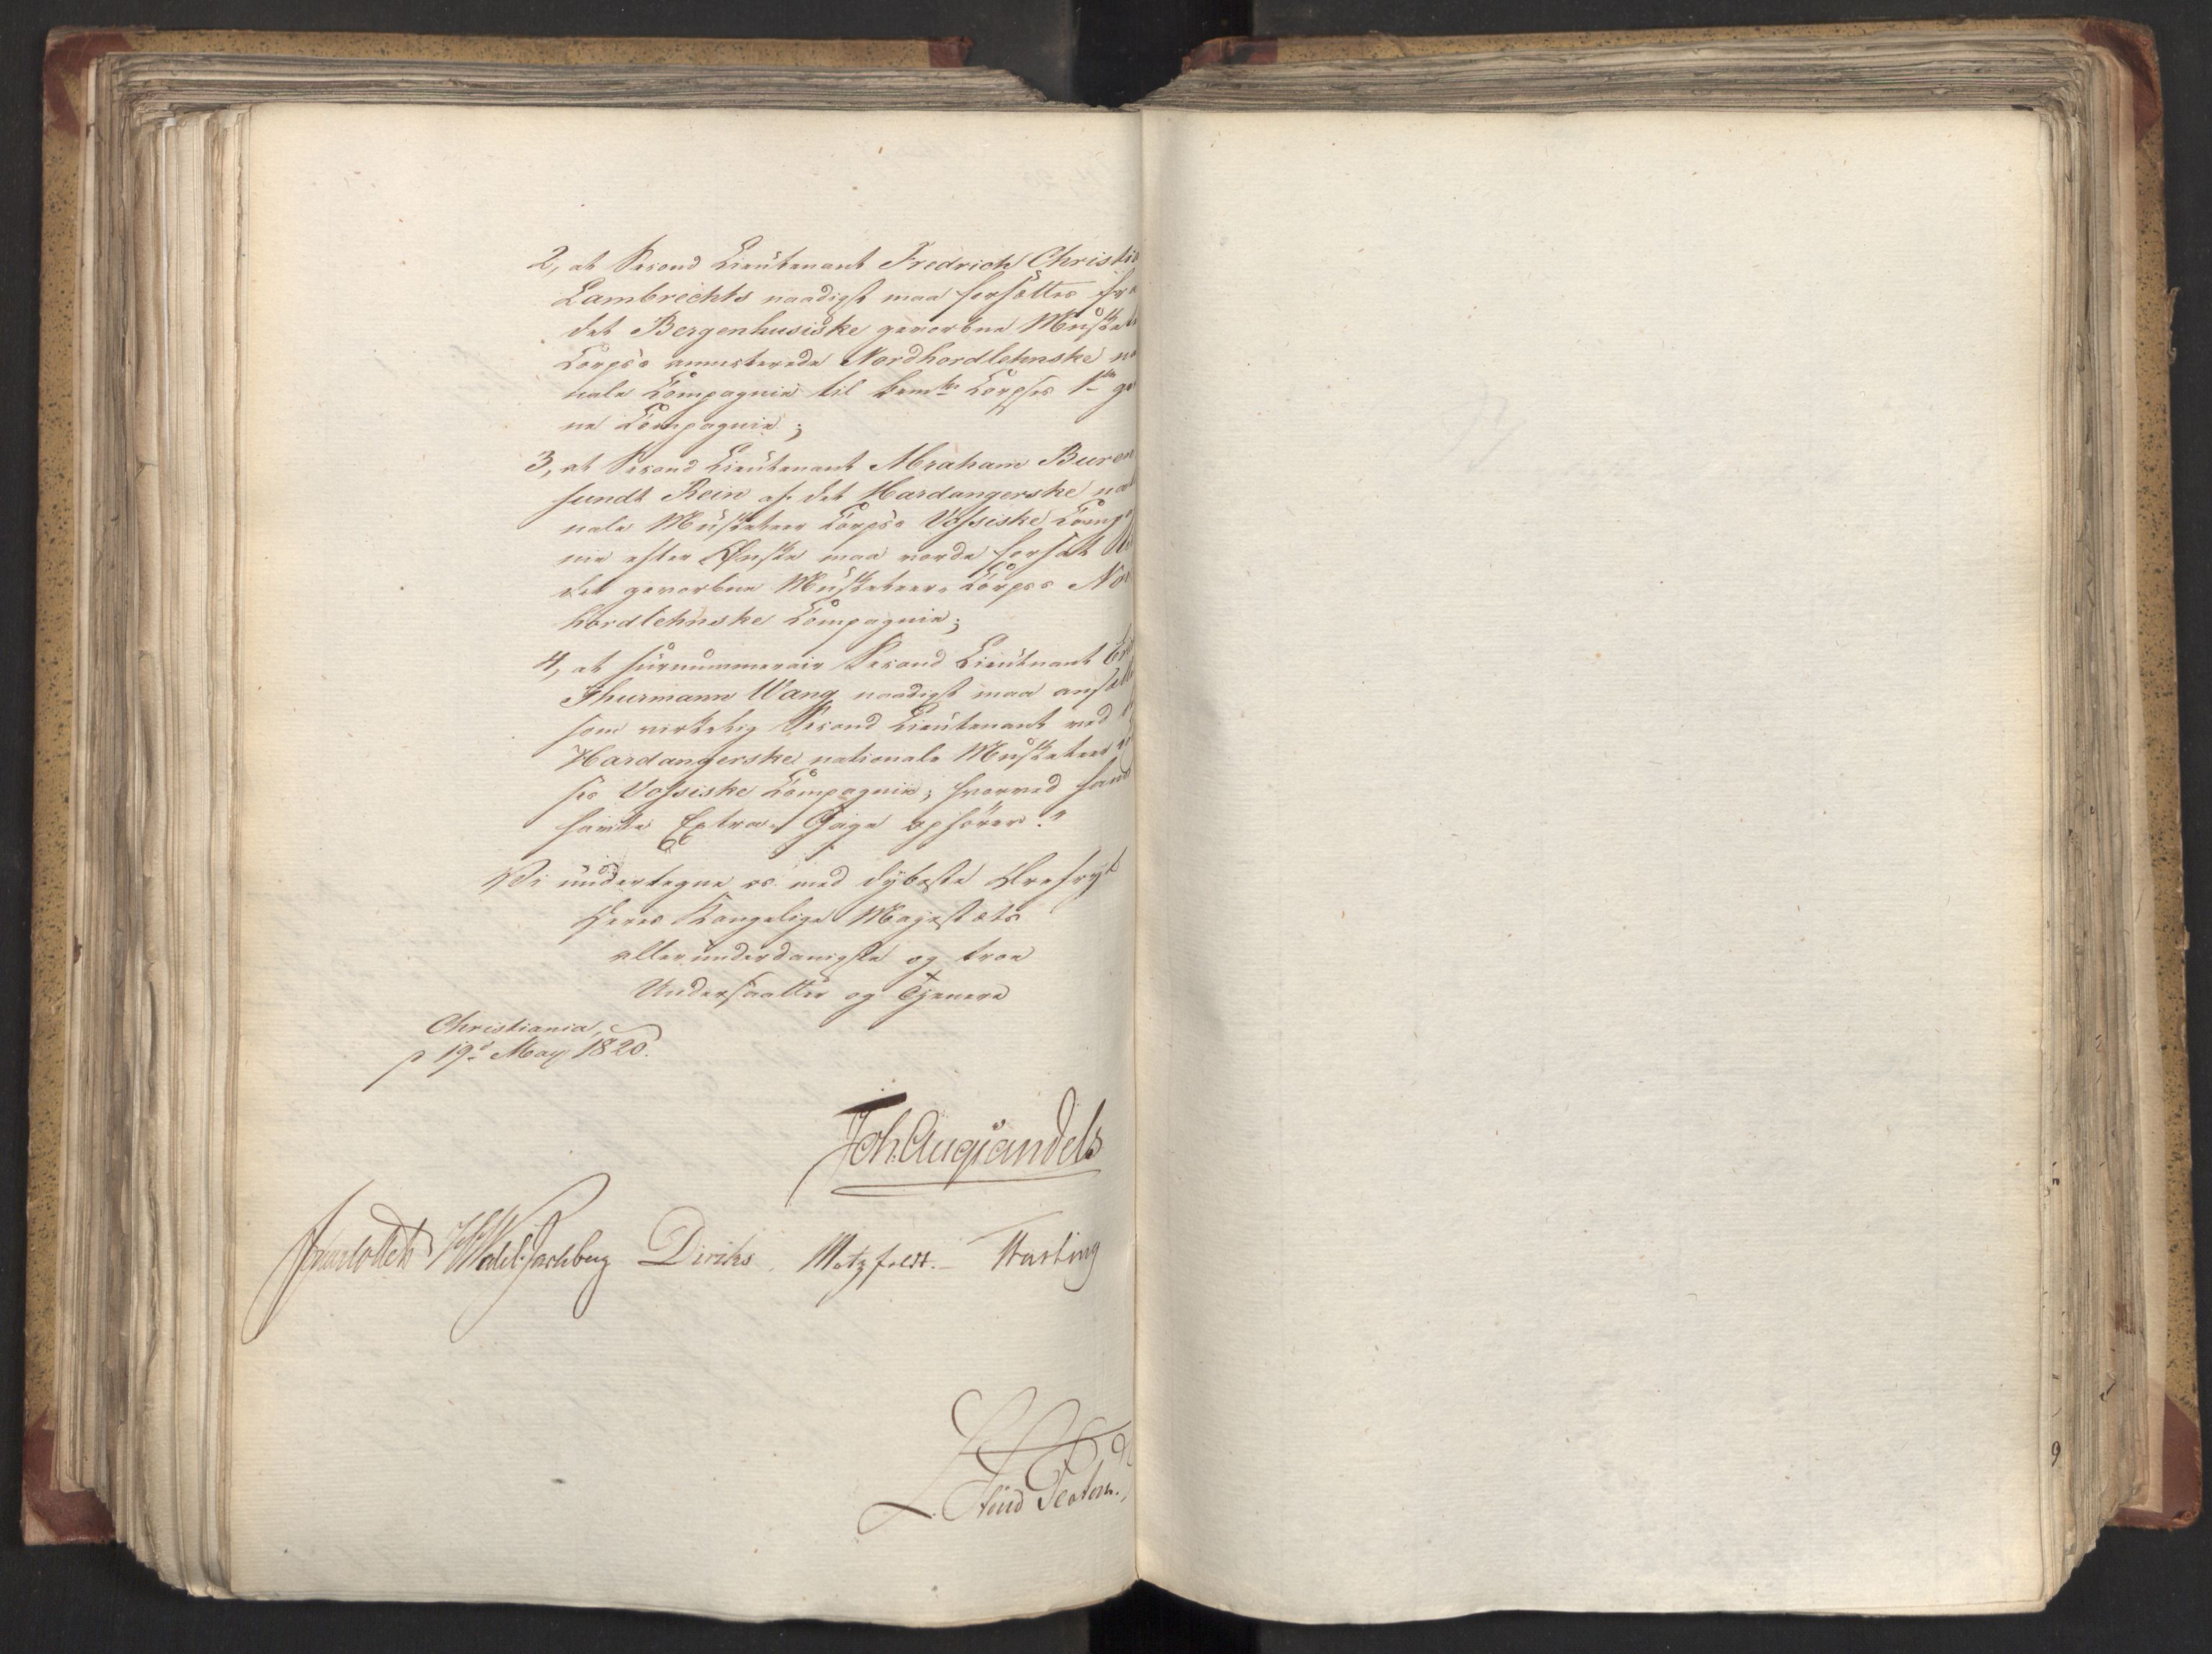 2, at Second Lieutenant Fredrich Christia
Lambrechts naadigst maa forsættes fra
det Bergenhusiske gevorbne Musket
Corps's annecterede Nordhordlehnske na
nale Compagnie til bem.te Corpses 1ste ge
ne Compagnie;
3, at Second Lieutenant Abraham Buren
sundt Rein af det Hardangerske nat
nale Musketeer Corps's Vossiske Comp
nie efter Ønske maa vorde forsat til
det gevorbne Musketeer-Corpses Nor
hordlehnske Compagnie;
4, at surnummerair Second Lieutenant
Thurmann Wang naadigst maa ansætte
som virkelig Second Lieutenant ved
Hardangerske nationale Musketeer
ses Vossiske Compagnie; hvorved hans
havte Extra-Gage ophører."
Vi undertegne os med dybeste Ærefrygt
Deres Kongelige Majestæts
allerunderdanigste og troe
Undersaatter og Tjenere
Christiania,
d 19d May 1820.
Joh. Aug. Sandels
Sommerhielm Diriks. Motzfeldt. Fasting